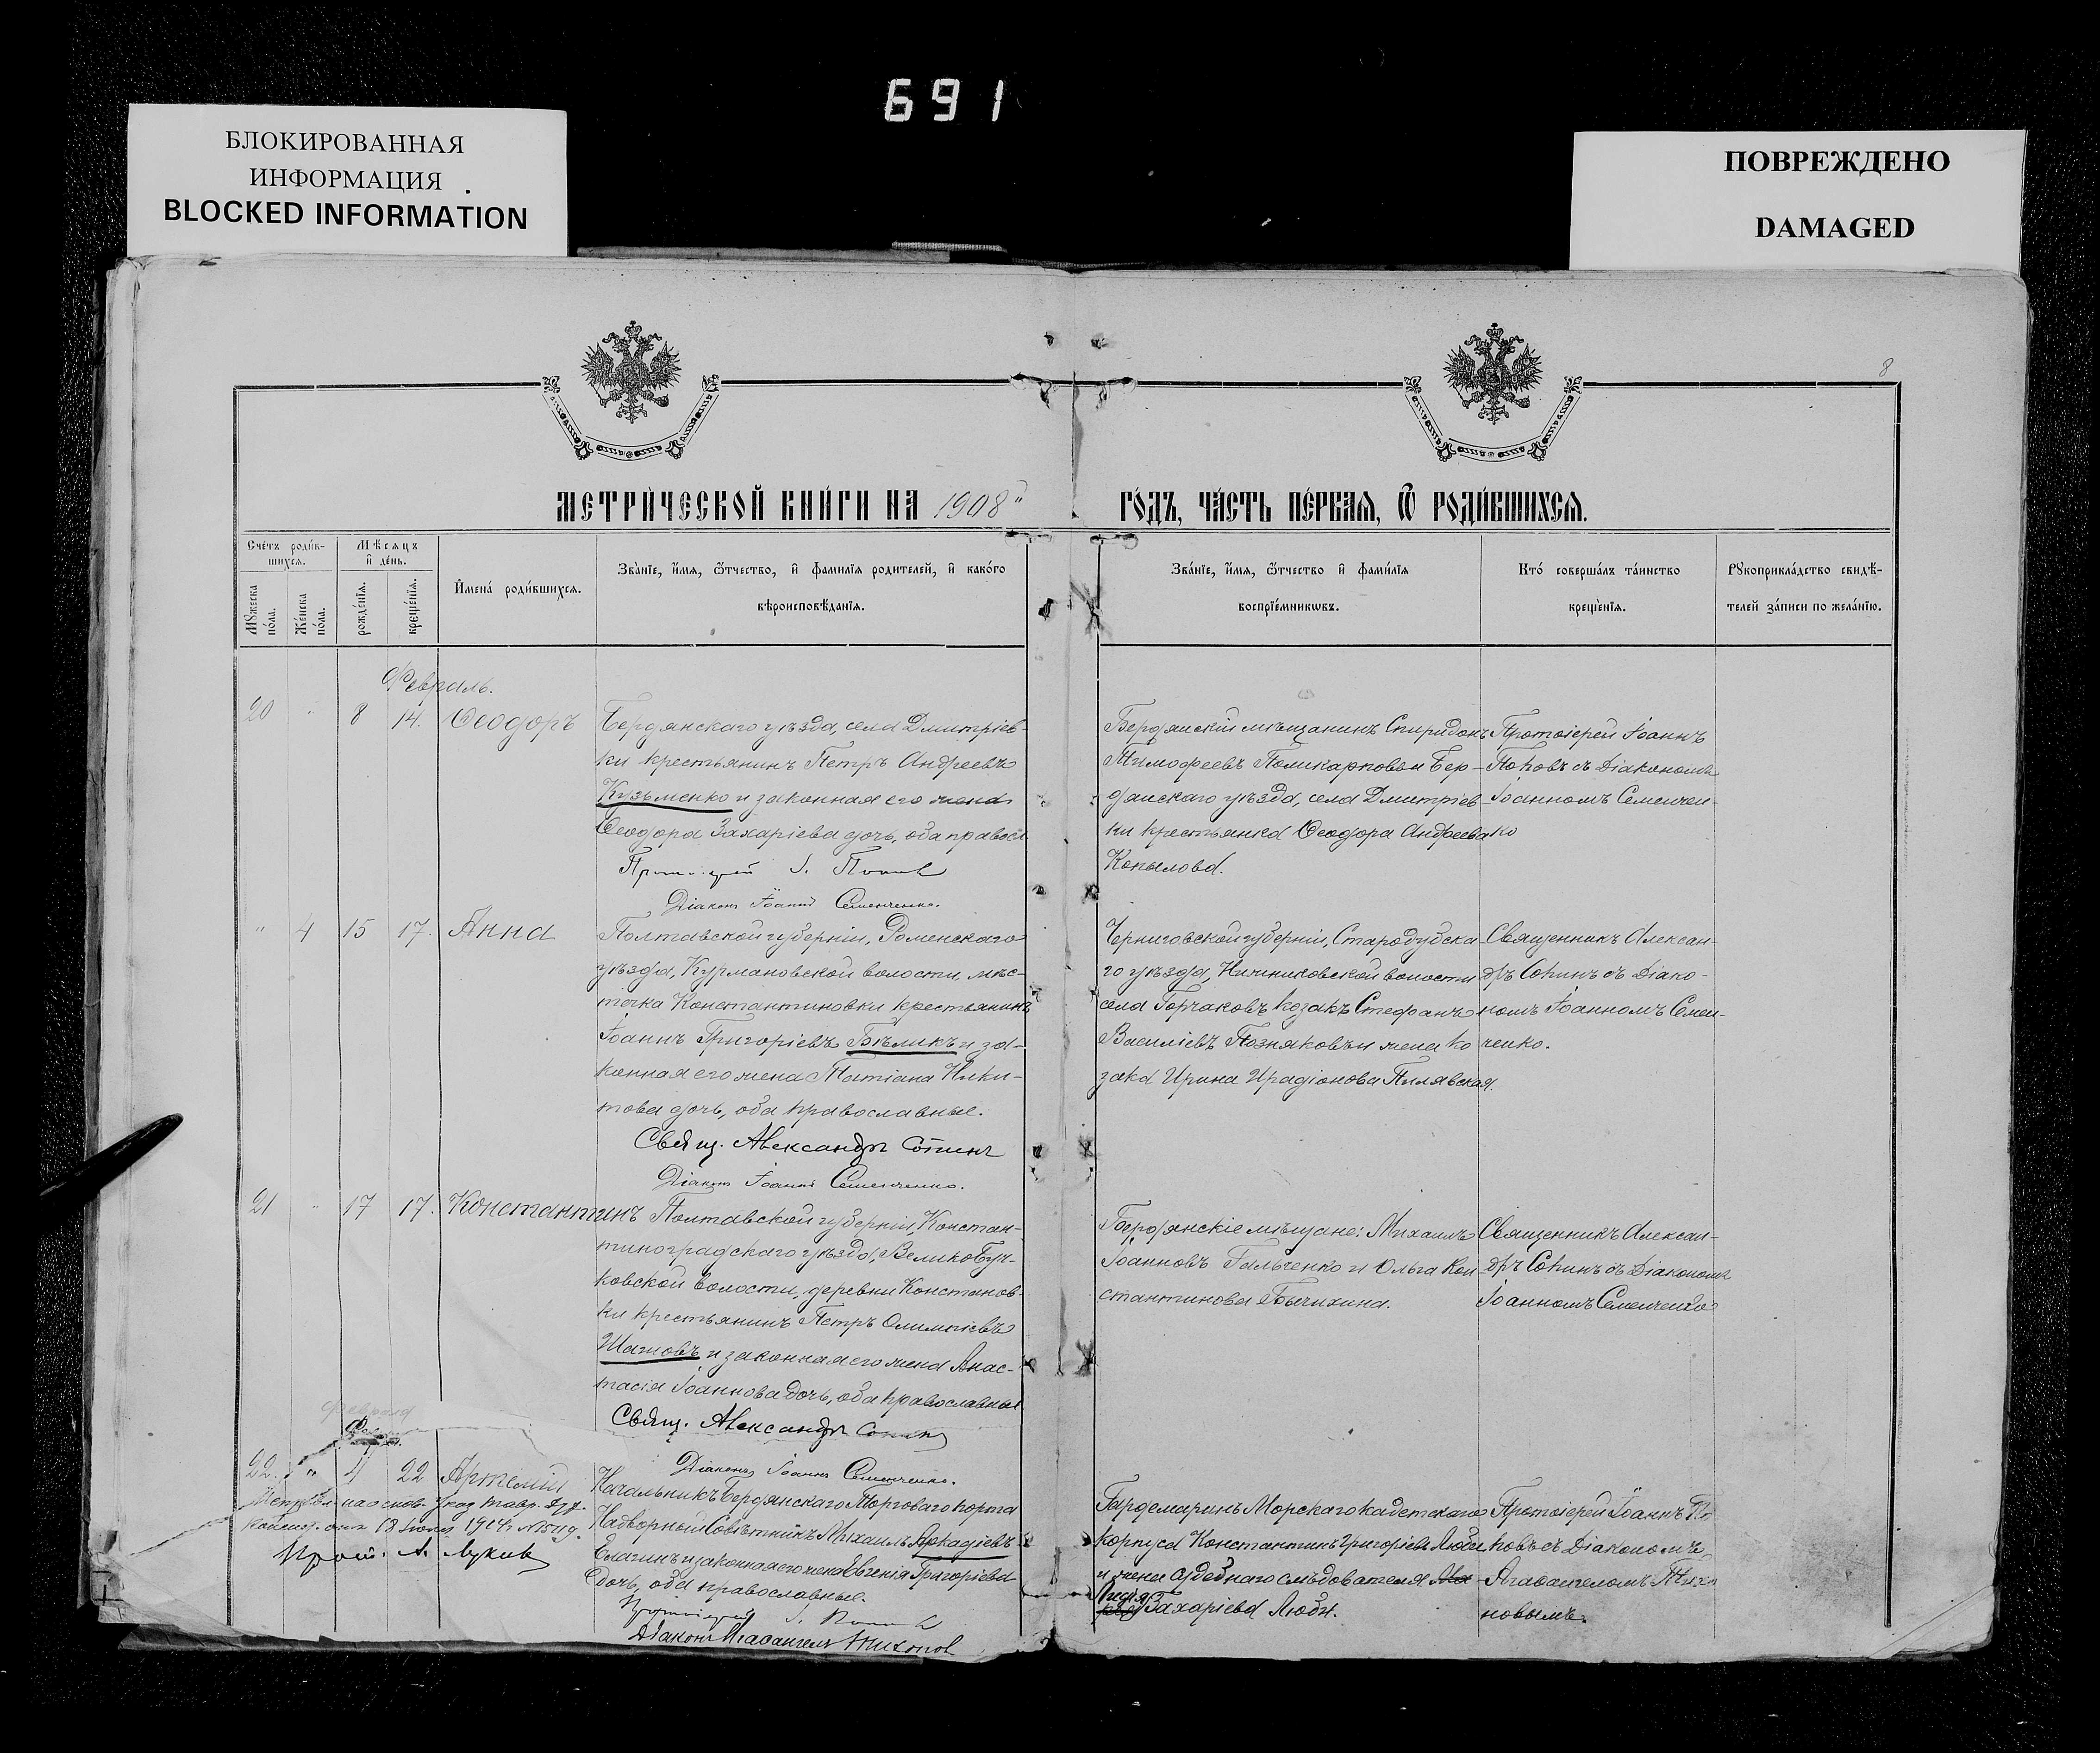 691
БЛОКИРОВАННАЯ
ИНФОРМАЦИЯ
BLOCKED INFORMATION
ПОВРЕЖДЕНО
DAMAGED
8
МЕТРИ́ЧЕСКОЙ КНИ́ГИ НА 1908
ГО́ДЪ, ЧА́СТЬ ПЕ́РВАѦ, Ѿ РОДИ́ВШИХСѦ.
Сче́тъ роди́в-
шихсѧ.
Мꙋ́жеска
по́ла.
Же́нска
по́ла.
Мѣ́сѧцъ
и҆ де́нь.
рожде́нїѧ.
креще́нїѧ.
И҆мена̀ роди́вшихсѧ.
Зва́нїе, и҆́мѧ, ѻ҆́тчество, и҆ фамилїѧ родителей, и҆ како́го
вѣроисповѣ́данїѧ.
Зва́нїе, и҆́мѧ, ѻ҆́тчество и҆ фами́лїѧ
воспрїе́мникѡвъ.
Кто́ соверша́лъ та́инство
креще́нїѧ.
Рꙋкоприкла́дство свидѣ́-
телей за́писи по жела́нїю.
Февраль.
20 " 8 14. Ѳеодоръ
Бердянскаго уѣзда, села Дмитріев-
ки крестьянинъ Петръ Андреевъ
Кузьменко и законная его жена
Ѳеодора Захаріева дочь, оба правосл.
Протоіерей І. Попов
Діаконъ Іоаннъ Семенченко.
Бердянскій мѣщанинъ Спиридонъ
Тимофеевъ Поликарповъ и Бер-
дянскаго уѣзда, села Дмитріев-
ки крестьянка Ѳеодора Андреева
Копылова.
Протоіерей Іоаннъ
Поповъ съ Діакономъ
Іоанномъ Семенчен-
ко
" 4 15 17. Анна
Полтавской губерніи, Роменскаго
уѣзда, Курмановской волости, мѣс-
точка Константиновки крестьянинъ
Іоаннъ Григоріевъ Бѣликъ и за-
конная его жена Татіана Ники-
това дочь, оба православные.
Свящ. Александръ Сопинъ
Діаконъ Іоаннъ Семенченко.
Черниговской губерніи, Стародубска-
го уѣзда, волости
села Горчаковъ козакъ Стефанъ
Василіевъ Позняковъ и жена ко
зака Ирина Ирадіонова Пилявская.
Священникъ Алексан-
дръ Сопинъ съ Діако-
номъ Іоанномъ Семен-
ченко.
21 " 17 17. Константинъ
Полтавской губерніи, Констан-
тиноградскаго уѣзда, Велико Буч-
ковской волости, деревни Константов-
ки крестьянинъ Петръ Олимпіевъ
и законная его жена Анас-
тасія Іоаннова дочь, оба православные
Свящ. Александръ Сопинъ
Діаконъ Іоаннъ Семенченко.
Бердянскіе мѣщане: Михаилъ
Іоанновъ Гальченко и Ольга Кон-
стантинова Бычихина.
Священникъ Алексан-
дръ Сопинъ съ Діакономъ
Іоанномъ Семенченко
Февраля
22. " 4 22 Артемій
Начальникъ Бердянскаго Торговаго порта
Надворный Совѣтникъ Михаилъ Аркадіевъ
Елагинъ и законная его жена Евгенія Григоріева
дочь, оба православные.
Протоіерей І. Попов
Діаконъ Агаѳангелъ Тихонов
на основ. Указ. Тавр. Дух.
18 1914 г. № 15419.
Прот. А.
Гардемаринъ Морскаго кадетскаго
корпуса Константинъ Григоріевъ Люби
и жена судебнаго слѣдователя
Лидія
Захаріева Люби.
Протоіерей Іоаннъ По
повъ съ Діакономъ
Агаѳангеломъ Тихо
новымъ.